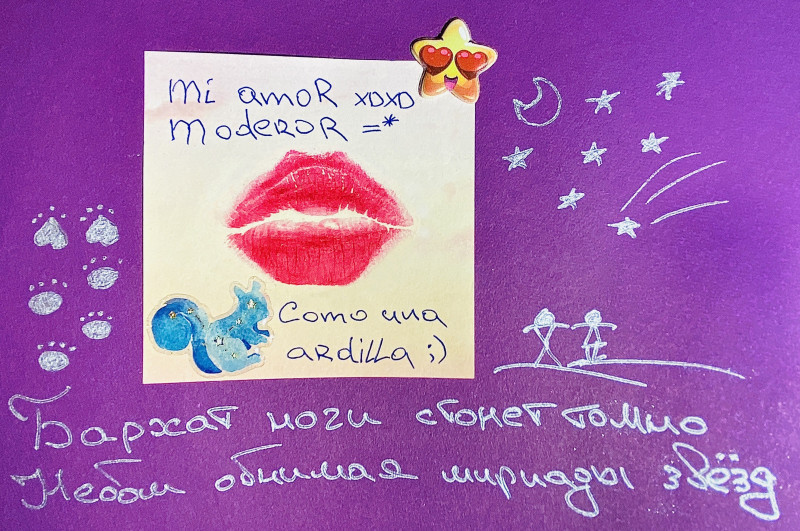 mi amoR xoxo
moderor =*
Como una
ardilla ;)
Бархат ночи стонет томно
Небом обнимая мириады звёзд